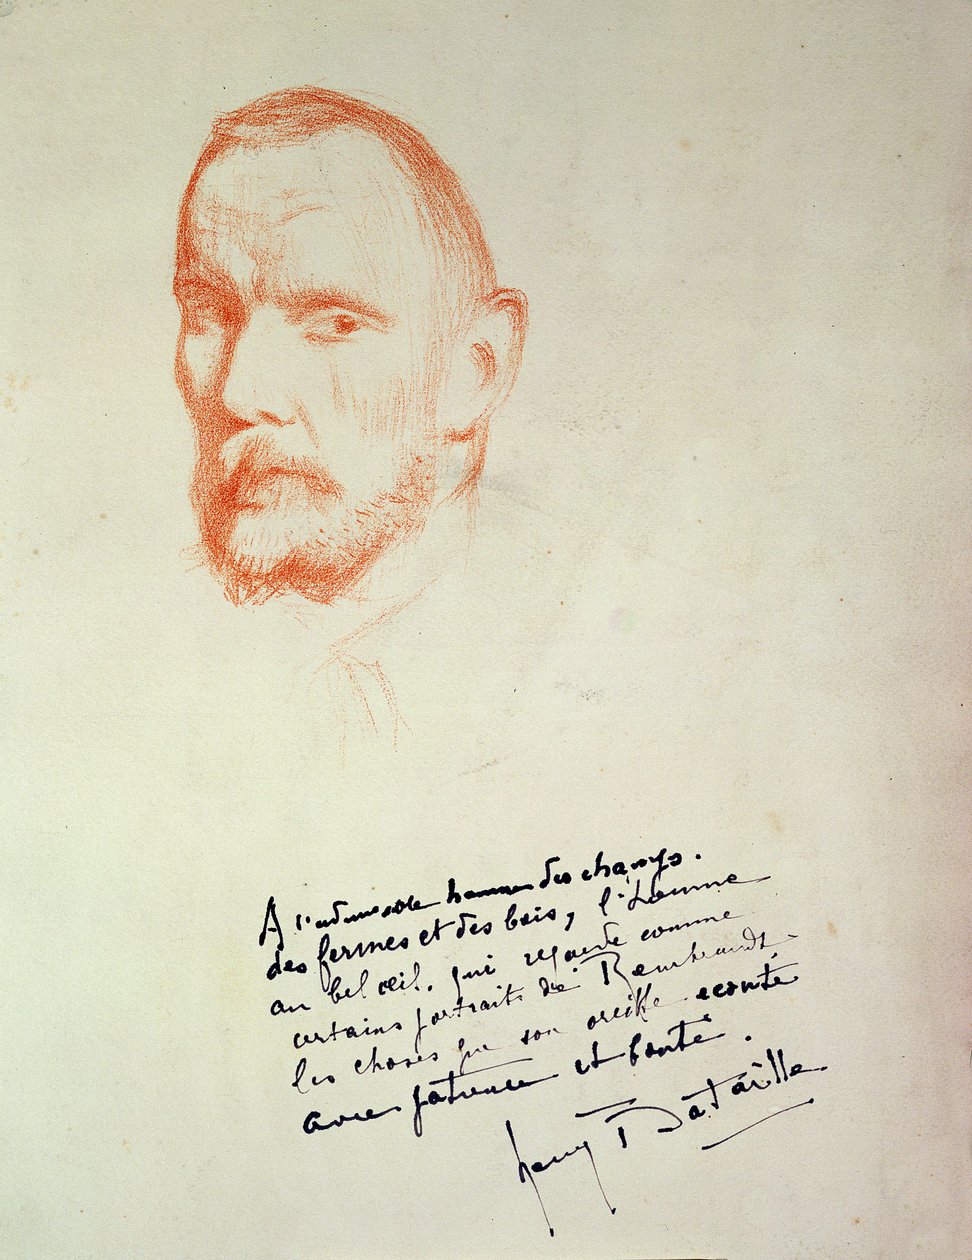 A l'admirable homme des champs.
des fermes et des bois, l'homme
au bel œil, qui regarde comme
certains portraits de Rembrandt
les choses que son oreille écoute
avec patience et bonté.
henry Bataille